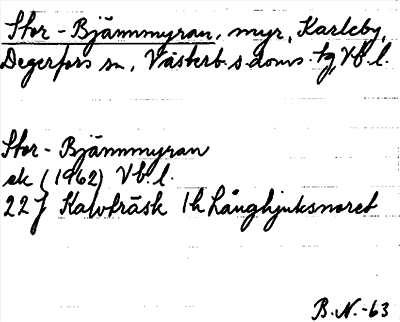 Stor-Bjännmyran, myr, Karleby,
Degerfors sn, Västerb:s doms. tg, Vb. l.
Stor-Bjännmyran
ek (1962) Vb. l.
22J Kalvträsk 1h Långhjuksnoret
B.N.-63